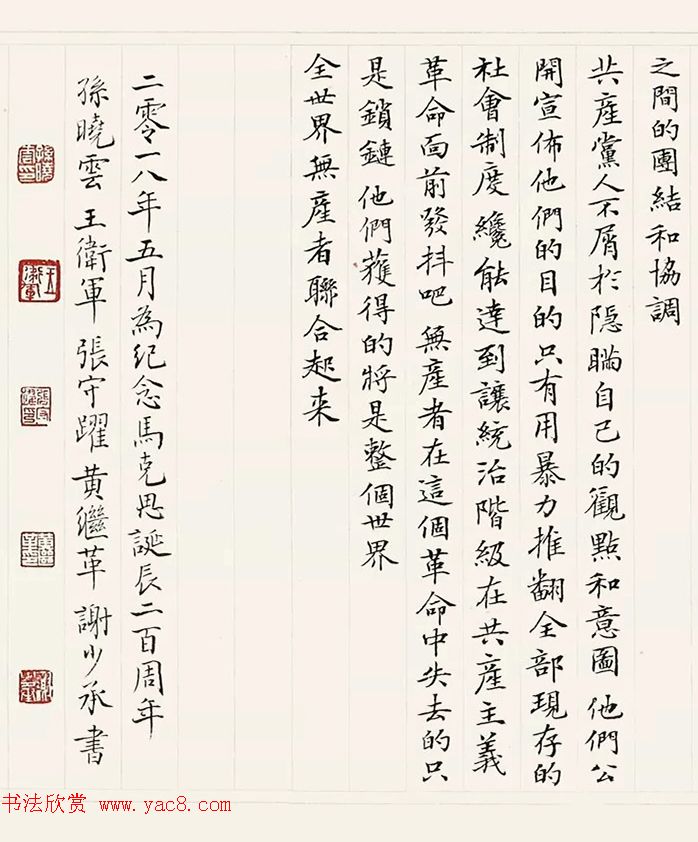 之間的團結和協調
共産黨人不屑於隱瞞自己的觀點和意圖 他們公
開宣佈他們的目的只有用暴力推翻全部現存的
社會制度 纔能達到讓統治階級在共産主義
革命面前發抖吧 無產者在這個革命中失去的只
是鎖鏈 他們獲得的將是整個世界
全世界無産者聯合起来
二零一八年五月為紀念馬克思誕辰二百周年
孫曉雲 王衛軍 張守躍 黄繼革 謝少承書
书法欣赏 www.yac8.com